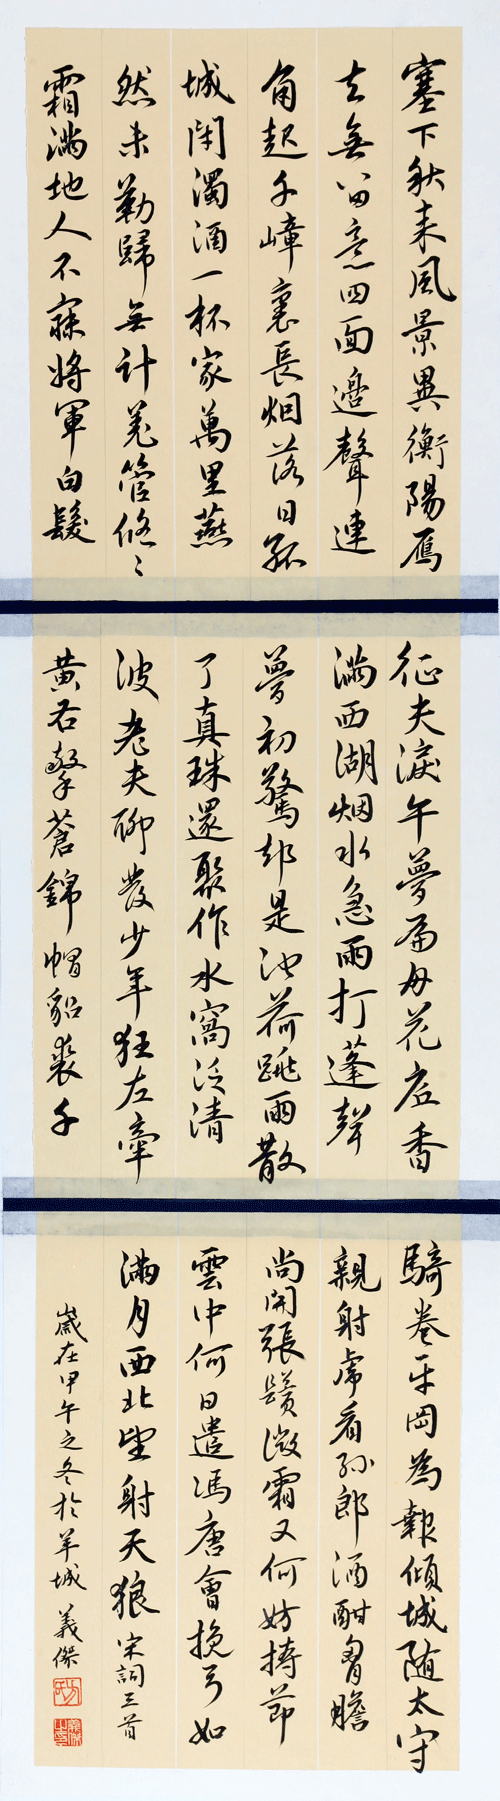 塞下秋来風景異衡陽雁
去無留意四面邊聲連
角起千嶂裏長烟落日孤
城閉濁酒一杯家萬里燕
然未勒歸無計羌管悠〻
霜满地人不寐将軍白髮
征夫淚午夢扁舟花底香
满西湖烟水急雨打蓬聲
夢初驚却是池荷跳雨散
了真珠還聚作水窩泛清
波老夫聊發少年狂左牽
黄右擎蒼錦帽貂裘千
騎卷平岡為報傾城随太守
親射虎看孫郎酒酣胸膽
尚開張鬢微霜又何妨持節
雲中何日遣馮唐會挽弓如
满月西北望射天狼 宋詞三首
歲在甲午之冬於羊城 義傑